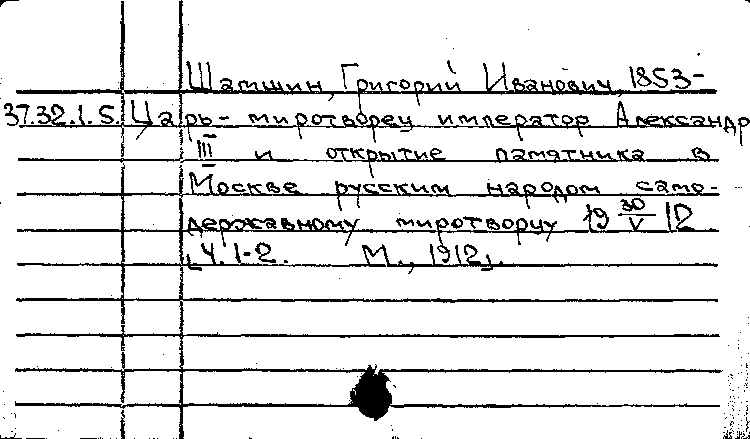 Шамшин, Григорий Иванович, 1853-
37.32.1.5. Царь-миротворец император Александр
III и открытие памятника в
Москве русским народом само-
державному миротворцу 19 30/V 12
[Ч. 1-2. М., 1912].